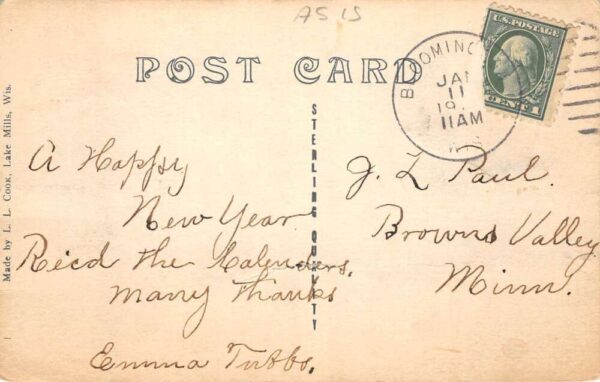 AS 15
POST CARD
BLOOMINGTON
JAN
11
11AM
WIS
U.S. POSTAGE
CENT 1
Made by L. L. COOK, Lake Mills, Wis.
STERLING QUALITY
A Happy
New Year
Rec'd the Calenders,
many thanks
Emma Tubbs.
J. L Paul.
Browns Valley
Minn.